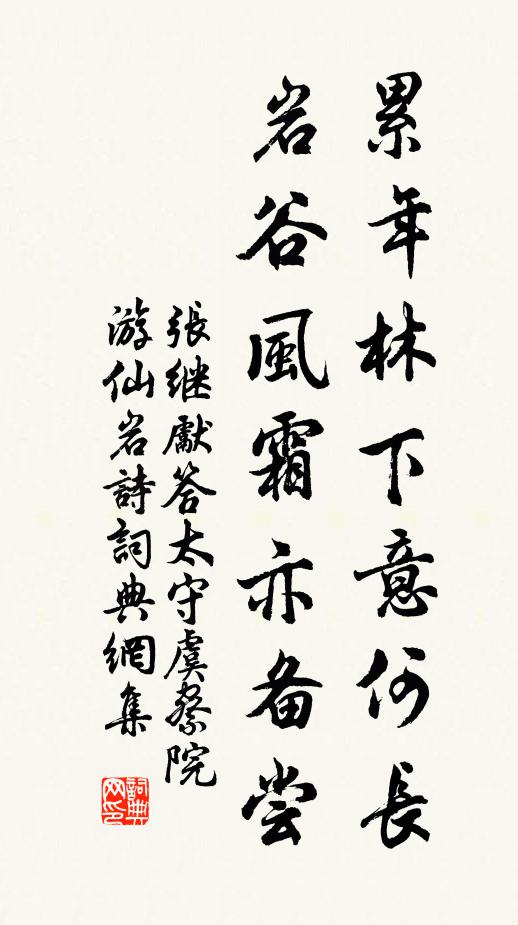 累年林下意何長
岩谷風霜亦备尝
張继獻答太守虞察院
游仙岩詩詞典網集
詞典
网印